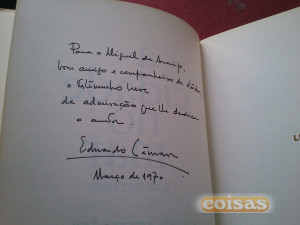 Para o Miguel de Araújo,
bom amigo e companheiro de
o testemunho breve
da admiração que lhe dedica
o autor.
Eduardo
Março de 1970
L
coisas